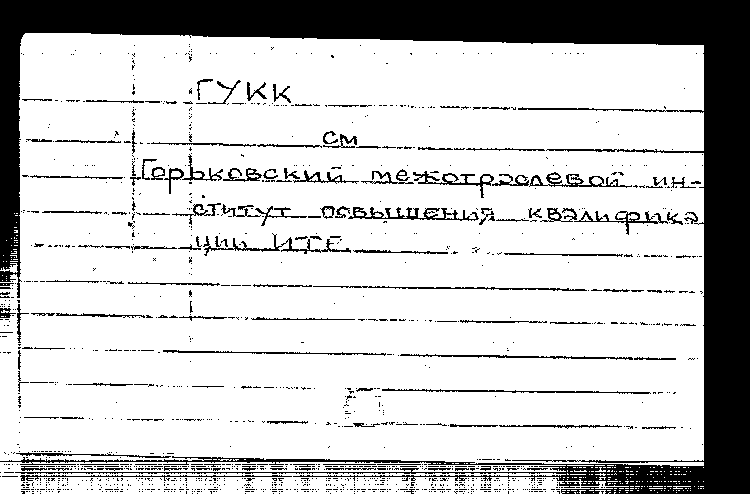 ГУКК
см
Горьковский межотраслевой ин-
ститут повышения квалифика
ции ИТР.